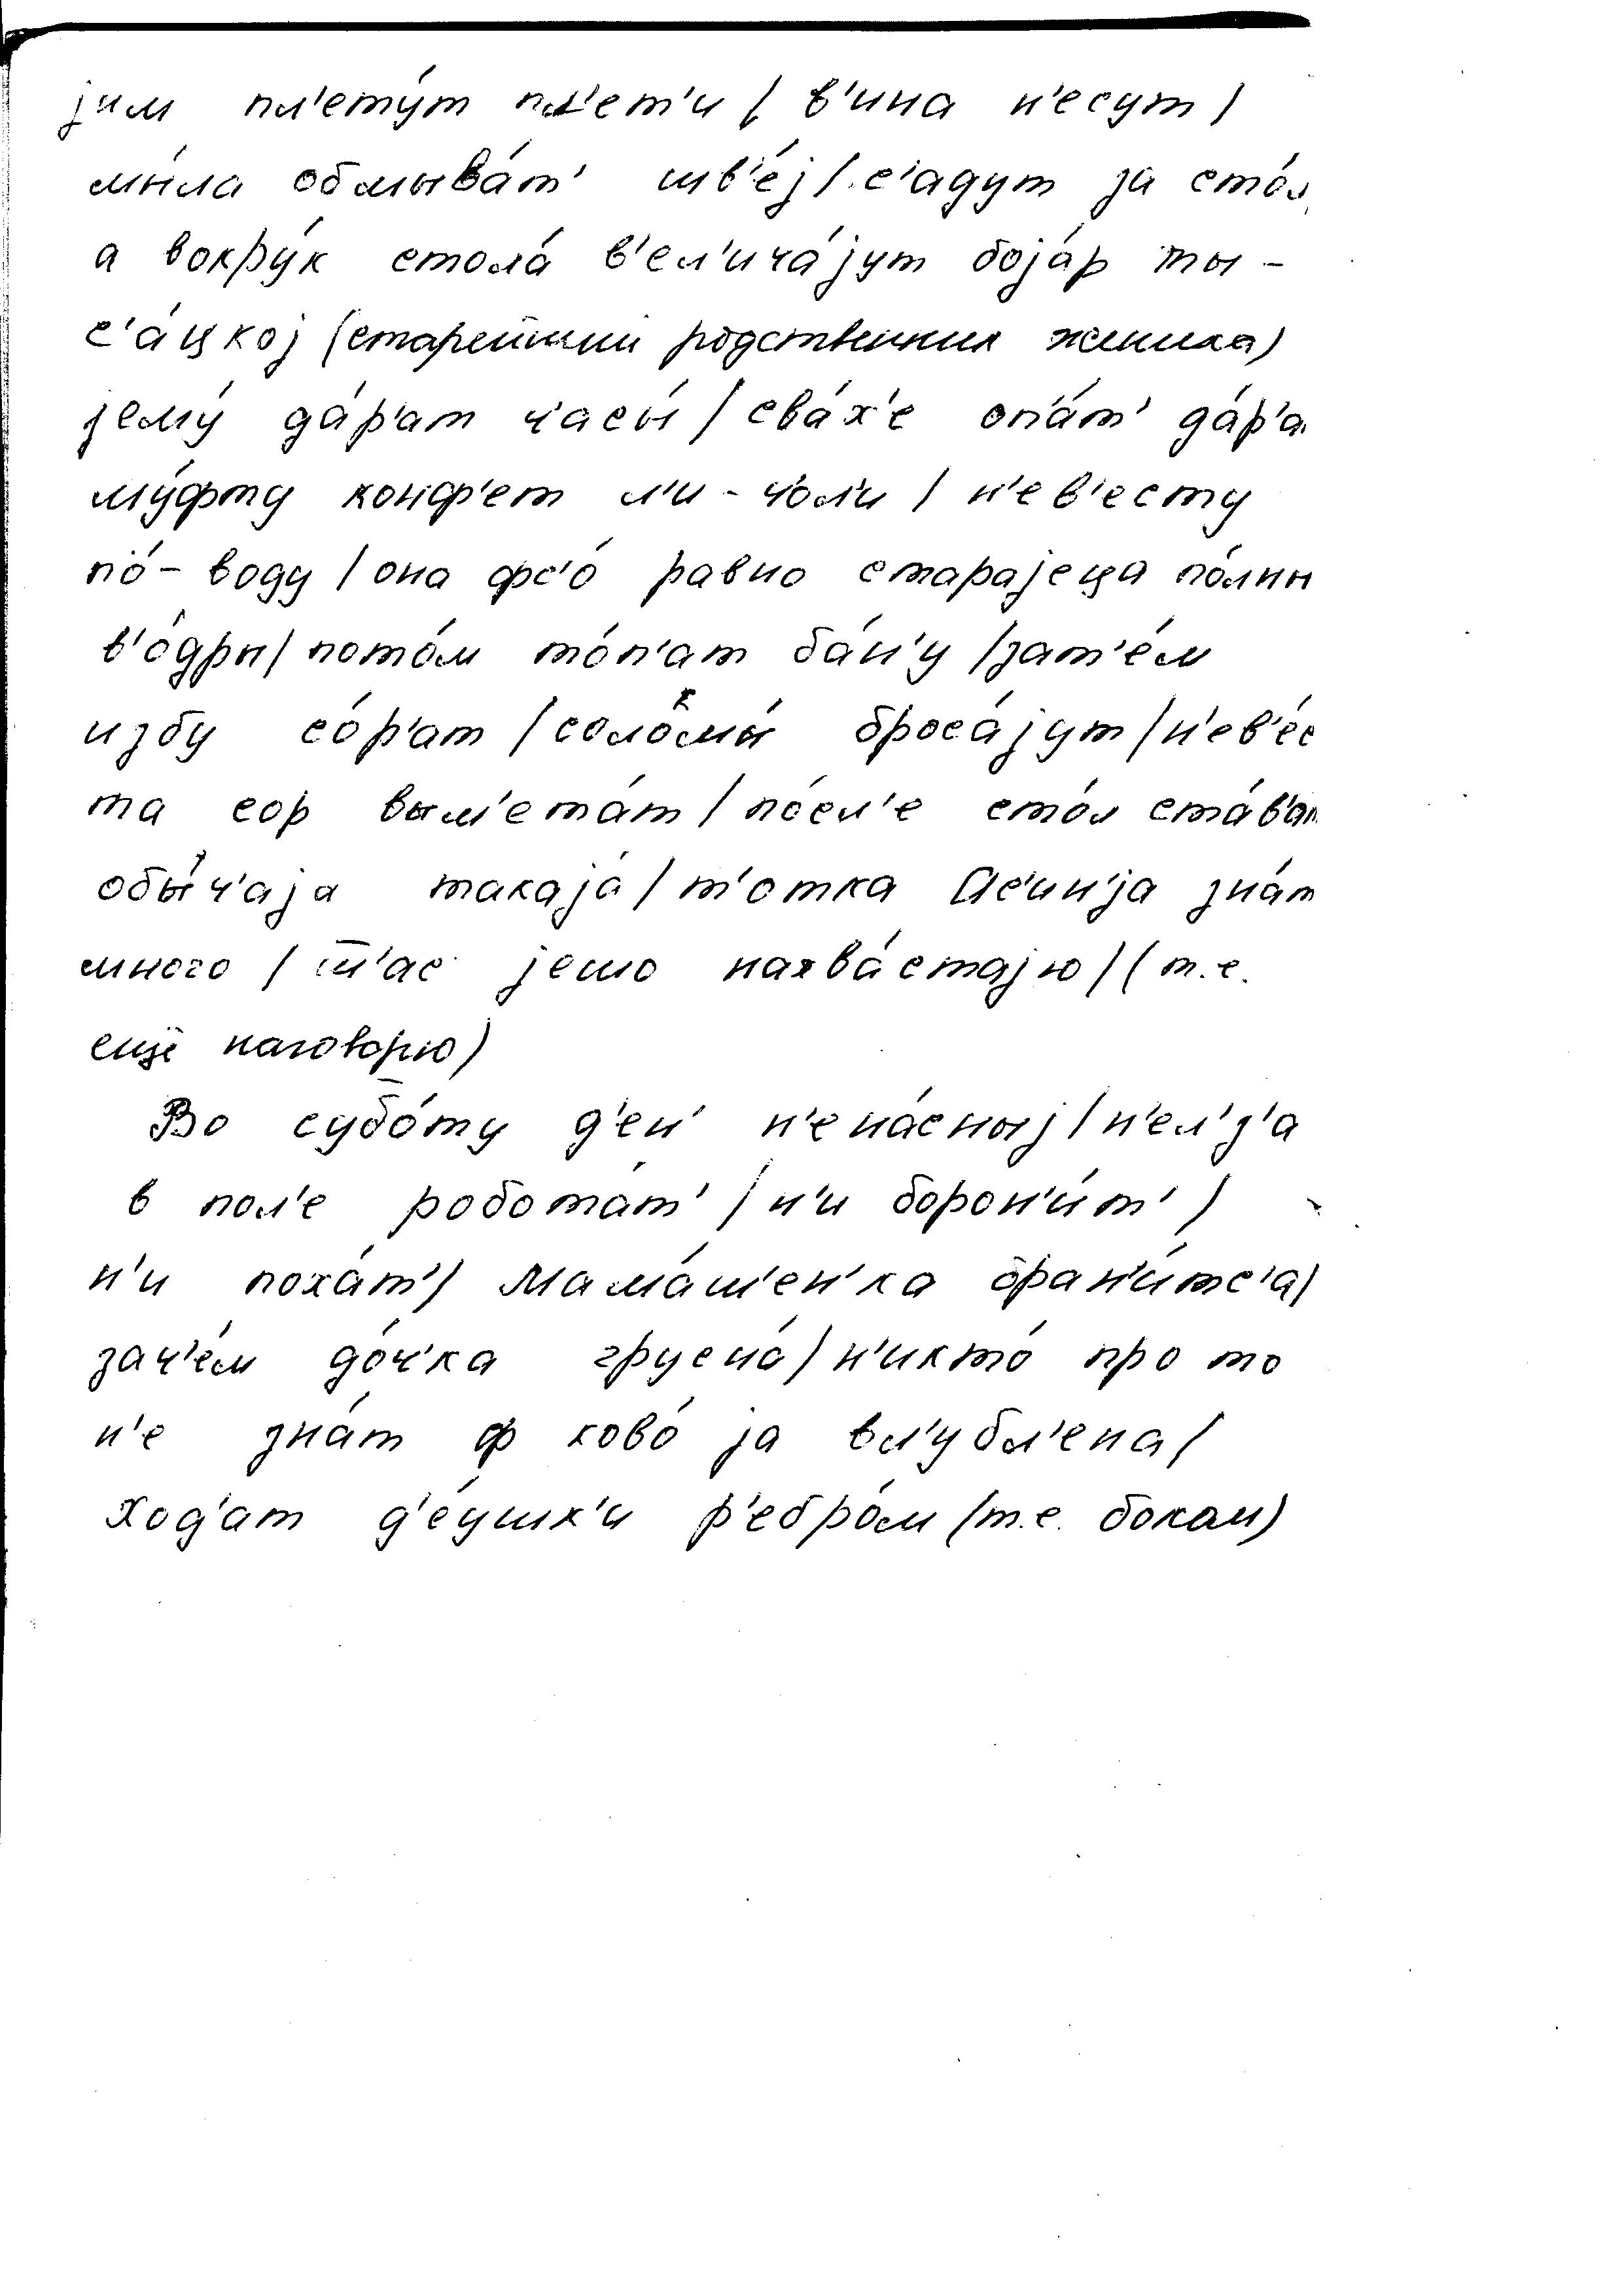 јим пл'ету́т пл'ет'и / в'ина н'есут /
мы́ла обмыва́т' шв'е́ј / с'адут за сто́л
а вокру́к стола́ в'ел'ича́јут боја́р ты -
с'а́цкој (старейший родственник жениха)
јему́ да́р'ат ч'асы́ / сва́х'е оп'а́т' да́р'а
му́фту конф'ет л'и - ч'ол'и / н'ев'есту
по́ - воду / она фс'о́ равно старајеца по́лны
в'о́дры / пото́м то́п'ат ба́н'у / зат'е́м
избу со́р'ат / соло́мы́ броса́јут / н'ев'е́с
та сор вым'ета́т / по́сл'е сто́л ста́в'ат
обы́ч'аја такаја́ / т'отка Ас'ин'ја зна́т
много / ш'ас јешо нахва́стајю / (т.е.
ещё наговорю)
Во субо́ту д'ен' н'ена́сныј / н'ел'з'а
в пол'е робота́т' / н'и борон'и́т' /
н'и поха́т' / Мама́ш'ен'ка бран'и́тс'а /
зач'е́м до́ч'ка грусна́ / н'икто́ про то
н'е зна́т ф ково́ ја вл'убл'ена /
Ход'ат д'е́ушк'и р'ебро́м (т.е. боком)